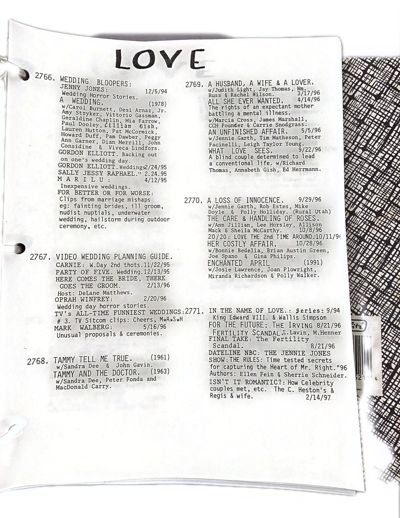 LOVE
2766. WEDDING BLOOPERS:
JENNY JONES: 12/5/94
Wedding Horror Stories.
A WEDDING. (1978)
w/Carol Burnett, Desi Arnaz, Jr.
Amy Stryker, Vittorio Gassman,
Geraldine Chaplin, Mia Farrow,
Paul Dooley, Lillian Gish,
Lauren Hutton, Pat McCormick
Howard Duff, Pam Dawber, Peggy
Ann Garner, Dina Merrill, John
Considine & Viveca Lindfors.
GORDON ELLIOTT: Backing out
on one's wedding day.
GORDON ELLIOTT: Weddings 2/24/95
SALLY JESSY RAPHAEL: 2.24.95
M A R I L U : 4/12/95
Inexpensive weddings.
FOR BETTER OR FOR WORSE:
Clips from marriage mishaps
eg: fainting brides, ill groom,
nudist nuptials, underwater
wedding, hailstorm during outdoor
ceremony, etc.
2767. VIDEO WEDDING PLANNING GUIDE.
CARNIE: W.Day 2nd thots. 11/22/95
PARTY OF FIVE. Wedding. 12/13/95
HERE COMES THE BRIDE, THERE
GOES THE GROOM. 2/13/96
Host: DeLane Matthews.
OPRAH WINFREY: 2/20/96
Wedding day horror stories.
TV's ALL-TIME FUNNIEST WEDDINGS:
# 3. TV Sitcom clips: Cheers, M*A*S*H
MARK WALBERG: 5/16/96
Unusual proposals & ceremonies.
2768. TAMMY TELL ME TRUE. (1961)
w/Sandra Dee & John Gavin.
TAMMY AND THE DOCTOR. (1963)
w/Sandra Dee, Peter Fonda and
MacDonald Carey.
2769. A HUSBAND, A WIFE & A LOVER.
w/Judith Light, Jay Thomas, Wm.
Russ & Rachel Wilson. 3/17/96
ALL SHE EVER WANTED. 4/14/96
The rights of an expectant mother
battling a mental illness.
w/Marcia Cross, James Marshall,
CCH Pounder & Carrie Snodgrass.
AN UNFINISHED AFFAIR. 5/5/96
w/Jennie Garth, Tim Matheson, Peter
Facinelli, Leigh Taylor Young.
WHAT LOVE SEES. 9/22/96
A blind couple determined to lead
a conventional life. w/Richard
Thomas, Annabeth Gish, Ed Herrmann.
2770. A LOSS OF INNOCENCE. 9/29/96
w/Jennie Garth, Rob Estes, Mike
Doyle & Polly Holliday. (Rural Utah)
THE CARE & HANDLING OF ROSES.
w/Ann Jillian, Lee Horsley, Jill
Muck & Sheila McCarthy. 10/8/96
20/20: LOVE THE 2nd TIME AROUND: 10/11/96
HER COSTLY AFFAIR. 10/28/96
w/Bonnie Bedelia, Brian Austin Green,
Joe Spano & Gina Philips.
ENCHANTED APRIL (1991)
w/Josie Lawrence, Joan Plowright,
Miranda Richardson & Polly Walker.
2771. IN THE NAME OF LOVE.: Series: 9/94
King Edward VIII. & Wallis Simpson
FOR THE FUTURE: THE IRVINE 8/21/96
FERTILITY SCANDAL. L.Lavin, M.Henner
FINAL TAKE: The Fertility
Scandal. 8/21/96
DATELINE NBC: THE JENNIE JONES
SHOW: THE RULES: Time tested secrets
for capturing the Heart of Mr. Right.'96
Authors: Ellen Fein & Sherrie Schneider.
ISN'T IT ROMANTIC?: How Celebrity
couples met, etc. The C. Heston's &
Regis & wife. 2/14/97